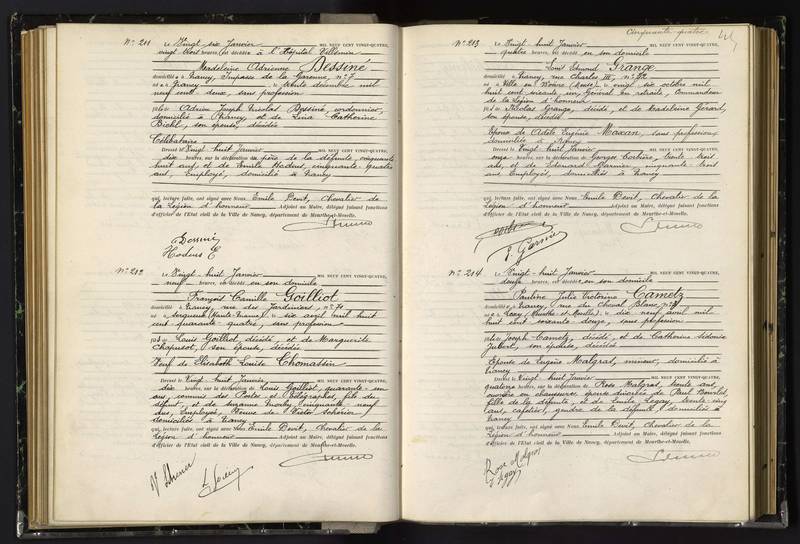 N° 211
Le Vingt six Janvier MIL NEUF CENT VINGT-QUATRE,
vingt trois heures, est décédée à l'Hôpital Villemin
Madeleine Adrienne Dessiné
domiciliée à Nancy, Impasse de la Garenne, n° 7
née à Nancy le trente décembre mil
neuf cent deux, sans profession
fille de Adrien Joseph Nicolas Dessiné, cordonnier,
domicilié à Nancy et de Lina Catherine
Biehl, son épouse, décédée
Célibataire
Dressé le Vingt huit Janvier MIL NEUF CENT VINGT-QUATRE,
dix heures, sur la déclaration du père de la défunte, cinquante
huit ans, et de Emile Hodens, cinquante-quatre
ans, Employé, domicilié à Nancy
qui, lecture faite, ont signé avec Nous Emile Devit, Chevalier de
la Légion d'honneur Adjoint au Maire, délégué faisant fonctions
d'officier de l'Etat civil de la Ville de Nancy, département de Meurthe-et-Moselle.
A Dessiné
Hodens E
N° 212
Le Vingt huit Janvier MIL NEUF CENT VINGT-QUATRE,
neuf heures, est décédé en son domicile
François Camille Goilliot
domicilié à Nancy, rue des Jardiniers, n° 71
né à Serqueux (Haute-Marne) le six avril mil huit
cent quarante-quatre, sans profession
fils de Louis Goilliot, décédé, et de Marguerite
Chapusot, son épouse, décédée
Veuf de Elisabeth Louise Thomassin
Dressé le Vingt huit Janvier MIL NEUF CENT VINGT-QUATRE,
dix heures, sur la déclaration de Louis Goilliot, quarante
ans, commis des Postes et Télégraphes, fils du
défunt, et de cinquante neuf
ans, Employée, Veuve de Victor
domiciliés à Nancy
qui, lecture faite, ont signé avec Nous Emile Devit, Chevalier de la
Légion d'honneur Adjoint au Maire, délégué faisant fonctions
d'officier de l'Etat civil de la Ville de Nancy, département de Meurthe-et-Moselle.
Cinquante quatre
54
N° 213
Le Vingt huit Janvier MIL NEUF CENT VINGT-QUATRE,
quatre heures, est décédé en son domicile
Louis Edmond Grange
domicilié à Nancy, rue Charles III, n° 92
né à Ville en Woëvre (Meuse) le vingt six octobre mil
huit cent soixante un, Général en retraite, Commandeur
de la Légion d'honneur
fils de Nicolas Grange, décédé, et de Madeleine Gérard,
son épouse, décédée
Epoux de Adèle Eugénie Maxan, sans profession,
domiciliée à Nancy
Dressé le Vingt huit Janvier MIL NEUF CENT VINGT-QUATRE,
onze heures, sur la déclaration de Georges Corbière, trente trois
ans, et de Edouard Garnier, cinquante-trois
ans, Employés, domiciliés à Nancy
qui, lecture faite, ont signé avec Nous Emile Devit, Chevalier de la
Légion d'honneur Adjoint au Maire, délégué faisant fonctions
d'officier de l'Etat civil de la Ville de Nancy, département de Meurthe-et-Moselle.
E. Garnier
N° 214
Le Vingt huit Janvier MIL NEUF CENT VINGT-QUATRE,
douze heures, est décédée en son domicile
Pauline Julie Victorine Cametz
domiciliée à Nancy, rue du Cheval Blanc, n°
née à Lexy (Meurthe et Moselle) le dix neuf avril mil
huit cent soixante douze, sans profession
fille de Joseph Cametz, décédé, et de Catherine Sidonie
son épouse, décédée
Epouse de Eugène Malgras, mineur, domicilié à
Nancy
Dressé le Vingt huit Janvier MIL NEUF CENT VINGT-QUATRE,
quatorze heures, sur la déclaration de Rose Malgras, trente ans,
ouvrière en chaussures, épouse divorcée de Paul
fille de la défunte, et de Emile Legay, trente cinq
ans, cafetier, gendre de la défunte, domiciliés à
Nancy
qui, lecture faite, ont signé avec Nous Emile Devit, Chevalier de la
Légion d'honneur Adjoint au Maire, délégué faisant fonctions
d'officier de l'Etat civil de la Ville de Nancy, département de Meurthe-et-Moselle.
Rose Malgras